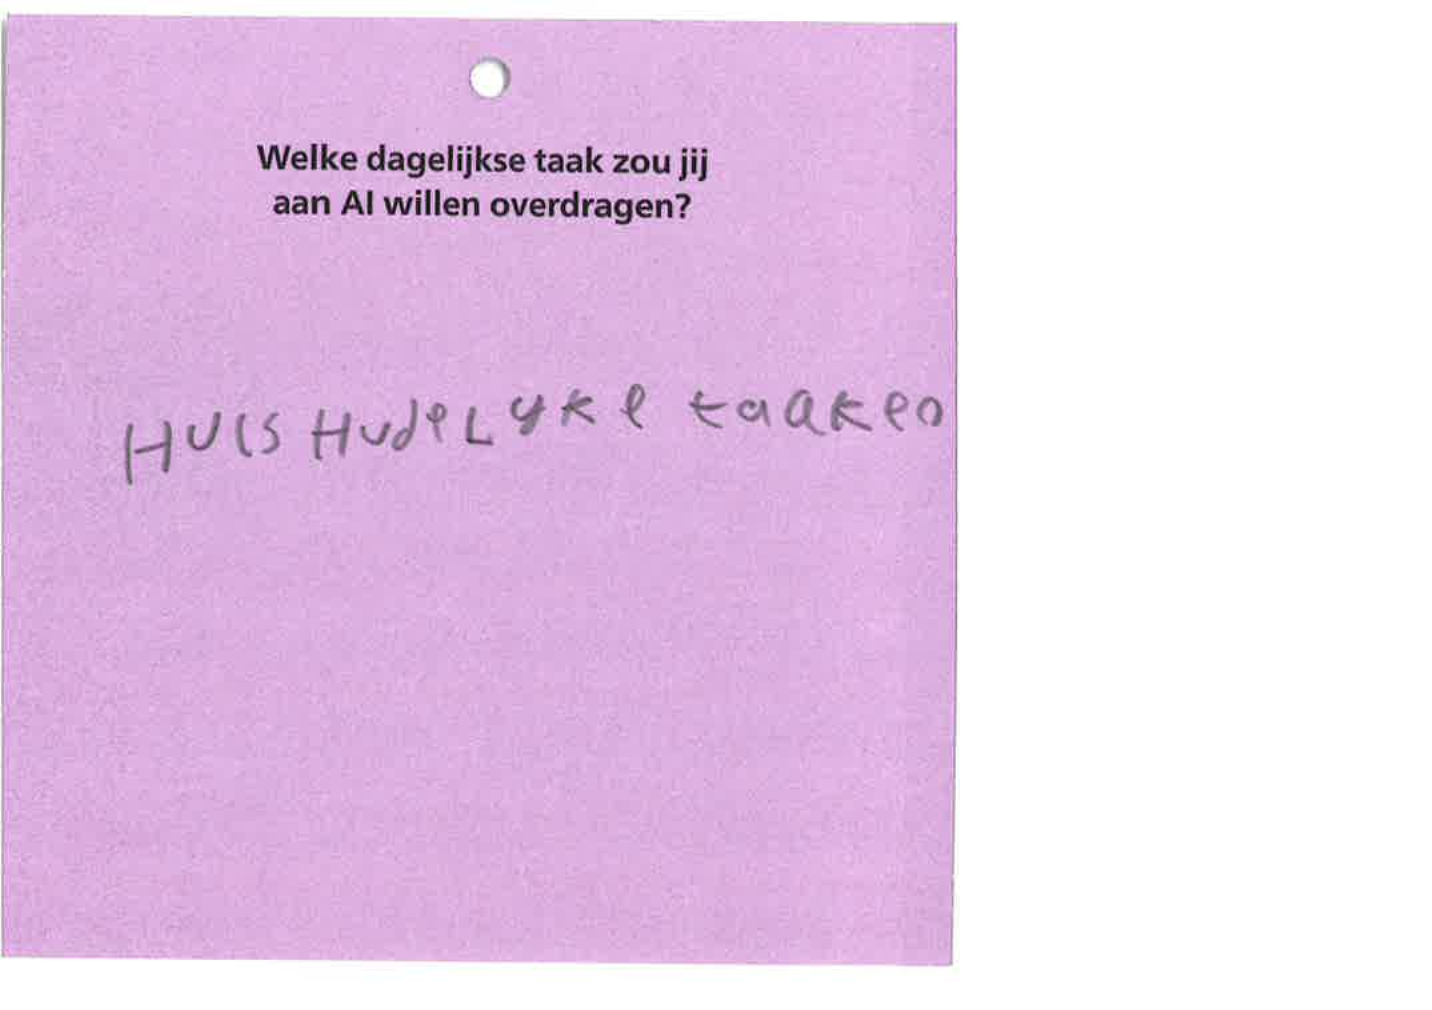 Welke dagelijkse taak zou jij
aan AI willen overdragen?
HUISHUdeLyKe taaken